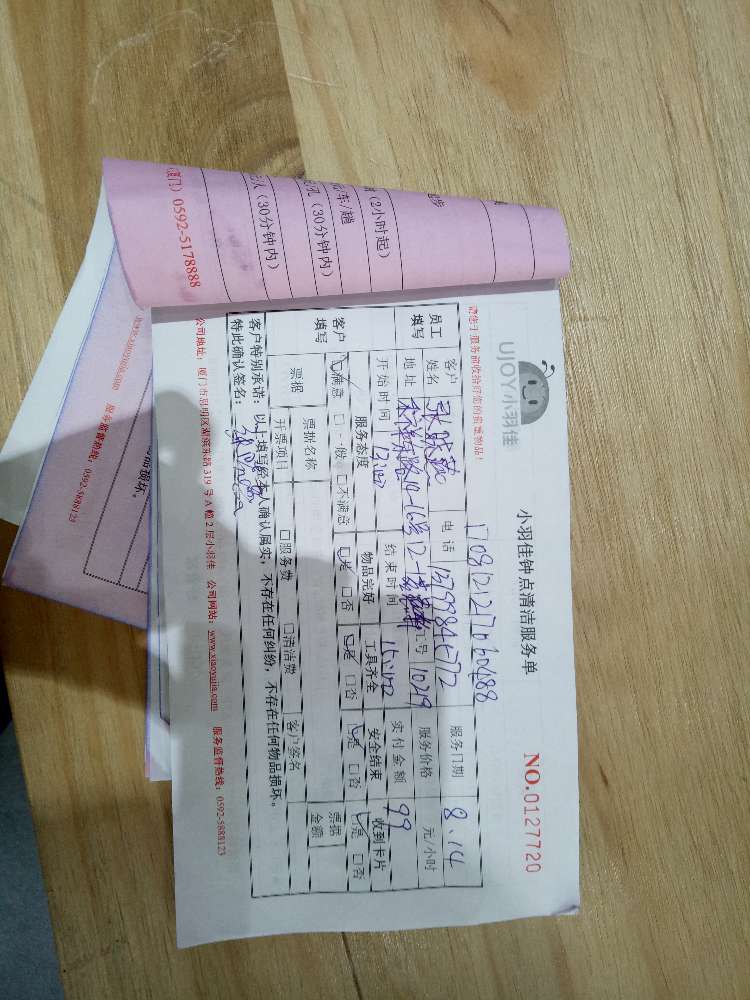 UJOY小羽佳
小羽佳钟点清洁服务单
NO.0127720
请您于服务前收拾好您的贵重物品！
员工填写
客户姓名
电话
服务日期 8.14
地址
工号 10219
服务价格 元/小时
开始时间
结束时间
实付金额 99
客户填写
服务态度 物品完好 工具齐全 安全结束 收到卡片
满意 □一般 □不满意 是 □否 是 □否 是 □否 是 □否
票据 票据名称 票据金额
开票项目 □服务费 □清洁费 客户签名
客户特别承诺：以上填写经本人确认属实，不存在任何纠纷，不存在任何物品损坏。
特此确认签名：
公司地址：厦门市思明区湖滨东路319号A幢2层小羽佳 公司网站：www.xiaoyujia.com 服务监督热线：0592-5888123
(2小时起)
元/车/趟
(30分钟内)
(30分钟内)
(厦门) 0592-5178888
服务监督热线：0592-5888123
品损坏。